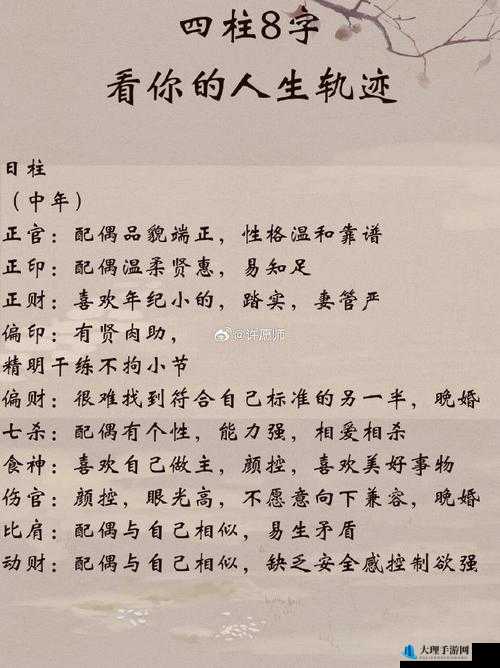 四柱8字
看你的人生轨迹
日柱
（中年）
正官：配偶品貌端正，性格温和靠谱
正印：配偶温柔贤惠，易知足
正财：喜欢年纪小的，踏实，妻管严
偏印：有贤肉助，
@许愿师
精明干练不拘小节
偏财：很难找到符合自己标准的另一半，晚婚
七杀：配偶有个性，能力强，相爱相杀
食神：喜欢自己做主，颜控，喜欢美好事物
伤官：颜控，眼光高，不愿意向下兼容，晚婚
比肩：配偶与自己相似，易生矛盾
动财：配偶与自己相似，缺乏安全感控制欲强
大理手游网